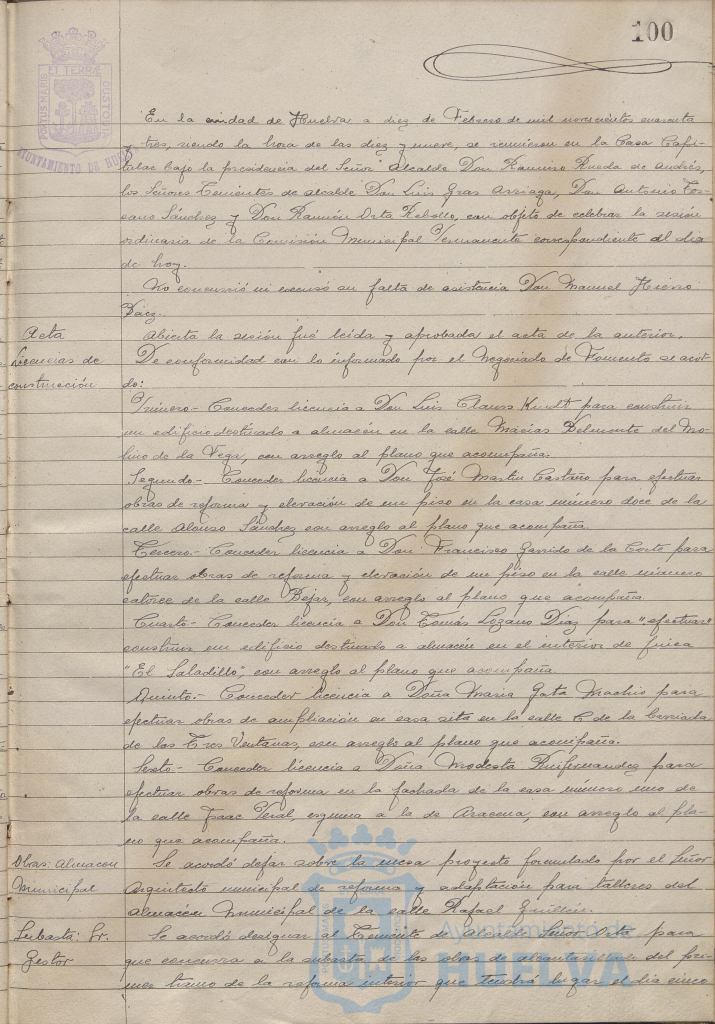 100
PORTUS MARIS ET TERRAE CUSTODIA
AYUNTAMIENTO DE HUELVA
En la ciudad de Huelva a diez de Febrero de mil novecientos cuarenta
y tres, siendo la hora de las diez y nueve, se reunieron en la Casa Capi-
tular bajo la presidencia del Señor Alcalde Don Ramiro Rueda de Andrés,
los Señores Tenientes de alcalde Don Luis Gras Arriaga, Don Antonio Tos-
cano Sánchez y Don Ramón Orta Rebollo, con objeto de celebrar la sesión
ordinaria de la Comisión Municipal Permanente correspondiente al dia
de hoy.
No concurrió ni excusó su falta de asistencia Don Manuel Hierro

Acta
Abierta la sesión fué leída y aprobada el acta de la anterior.
Licencias de
construcción
De conformidad con lo informado por el Negociado de Fomento se acor-
dó:
Primero.- Conceder licencia a Don Luis Clauss Kindt para construir
un edificio destinado a almacén en la calle Macias Belmonte del Mo-
lino de la Vega, con arreglo al plano que acompaña.
Segundo.- Conceder licencia a Don José Martin Castaño para efectuar
obras de reforma y elevación de un piso en la casa número doce de la
calle Alonso Sánchez con arreglo al plano que acompaña.
Tercero.- Conceder licencia a Don Francisco Garrido de la Corte para
efectuar obras de reforma y elevación de un piso en la calle número
catorce de la calle Bejar, con arreglo al plano que acompaña.
Cuarto.- Conceder licencia a Don Tomás Lozano Diaz para "efectuar"
construir un edificio destinado a almacén en el interior de finca
"El Saladillo", con arreglo al plano que acompaña.
Quinto.- Conceder licencia a Doña Maria Gata Machio para
efectuar obras de ampliación en casa sita en la calle C de la barriada
de las Tres Ventanas, con arreglo al plano que acompaña.
Sexto.- Conceder licencia a Doña Modesta Ruifernandez para
efectuar obras de reforma en la fachada de la casa número uno de
la calle Isaac Peral, esquina a la de Aracena, con arreglo al pla-
no que acompaña.
Obras: Almacen
Municipal
Se acordó dejar sobre la mesa proyecto formulado por el Señor
Arquitecto municipal de reforma y adaptación para talleres del
almacén municipal de la calle Rafael Guillén.
Subasta: Sr.
Gestor
Se acordó designar al Teniente de Alcalde Señor Orta para
que concurra a la subasta de las obras de alcantarillado del pri-
mer tramo de la reforma interior que tendrá lugar el dia cinco
Ayuntamiento de
HUELVA